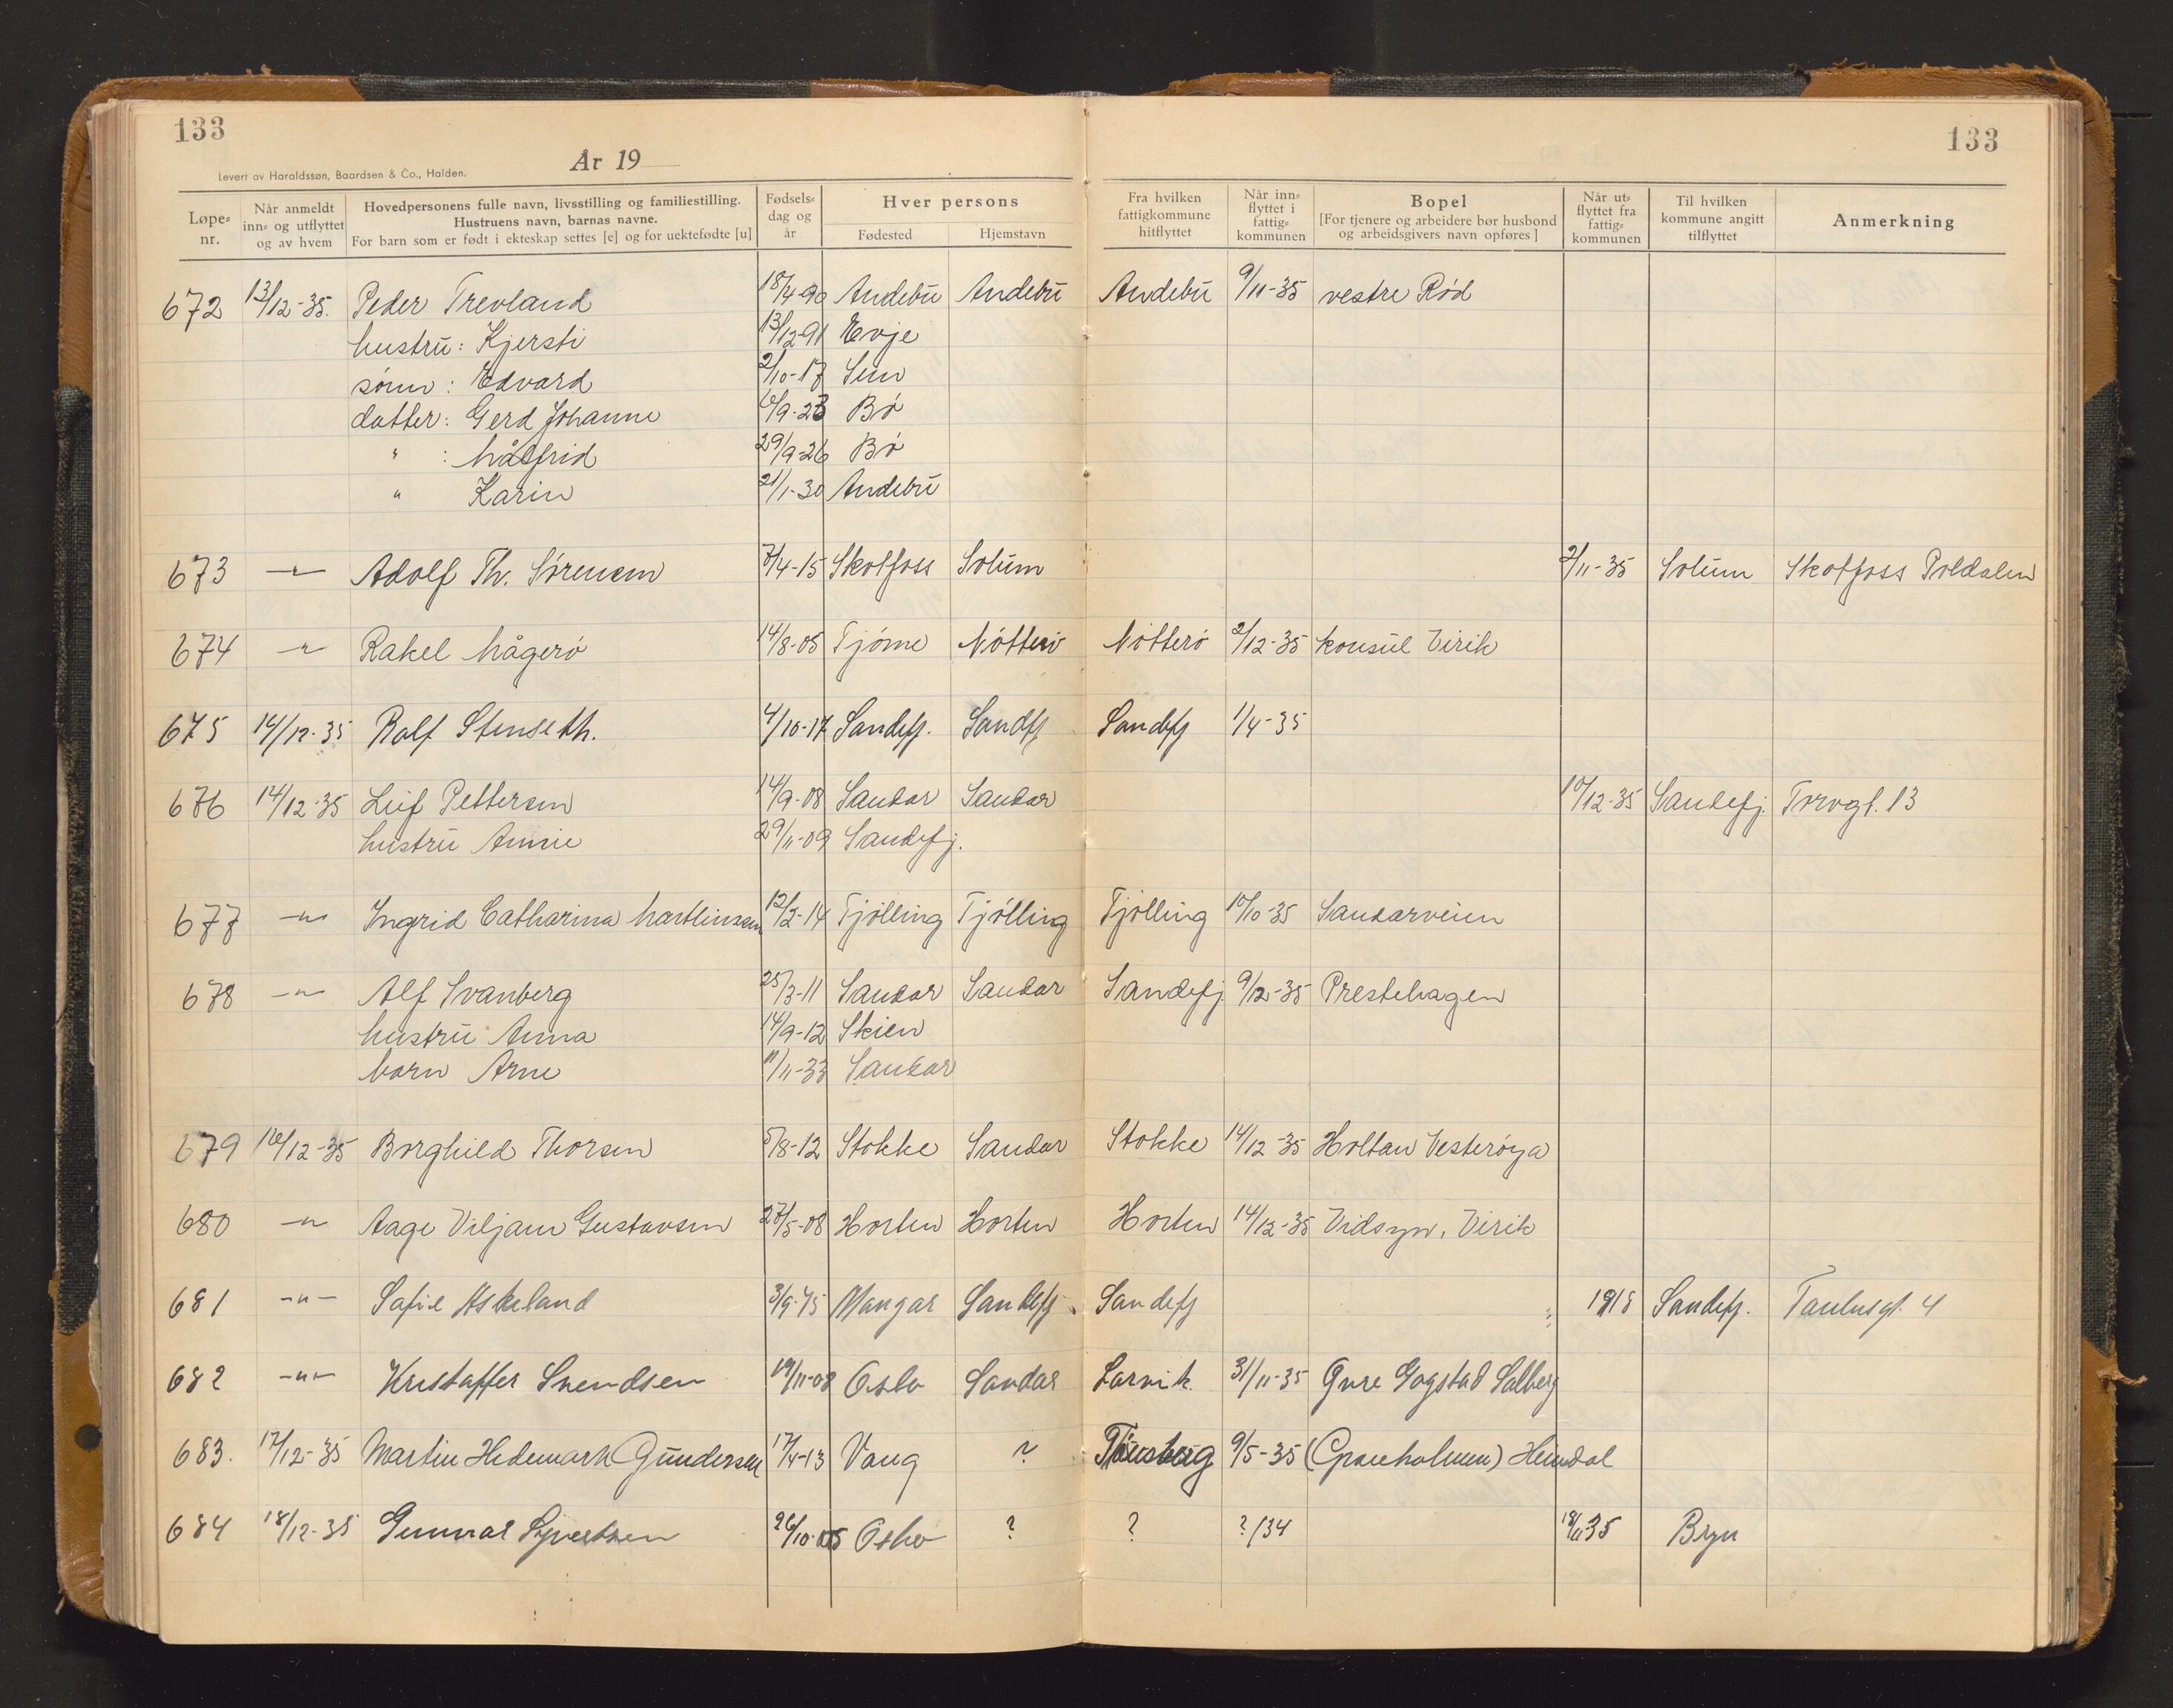 133
133
År 19
Levert av Haraldssøn, Baardsen & Co., Halden.
Løpe-nr. | Når anmeldt inn- og utflyttet og av hvem | Hovedpersonens fulle navn, livsstilling og familiestilling. Hustruens navn, barnas navne. For barn som er født i ekteskap settes [e] og for uektefødte [u] | Fødsels-dag og år | Hver persons | Fødested | Hjemstavn | Fra hvilken fattigkommune hitflyttet | Når inn-flyttet i fattig-kommunen | Bopel [For tjenere og arbeidere bør husbond og arbeidsgivers navn opføres] | Når ut-flyttet fra fattig-kommunen | Til hvilken kommune angitt tilflyttet | Anmerkning
672 13/12-35. Peder Trevland 18/4-90 Andebu Andebu Andebu 9/11-35 vestre Rød
hustru: Kjersti 13/12-91 Evje
sønn: Edvard 2/10-17 Sem
datter: Gerd Johanne 6/9-23 Bø
" : Målfrid 29/9-26 Bø
" Karin 21/1-30 Andebu
673 -"- Adolf Th. Sørensen 7/4-15 Skotfoss Solum 2/11-35 Solum Skotfoss Poldalen
674 -"- Rakel Mågerø 14/8-05 Tjøme Nøtterø Nøtterø 2/12-35 konsul Virik
675 14/12-35 Rolf Stenseth. 4/10-17 Sandefj. Sandfj Sandefj 1/4-35
676 14/12-35 Leif Pettersen 14/9-08 Sandar Sandar 10/12-35 Sandefj. Torvgt. 13
hustru Annie 29/11-09 Sandefj.
677 -"- Ingrid Catharina Martinsen 12/2-14 Tjølling Tjølling Tjølling 10/10-35 Sandarveien
678 -"- Alf Svanberg 25/3-11 Sandar Sandar Sandefj 9/12-35 Prestehagen
hustru Anna 14/9-12 Skien
barn Arne 11/11-33 Sandar
679 16/12-35 Borghild Thorsen 5/8-12 Stokke Sandar Stokke 14/12-35 Holtan Vesterøya
680 -"- Aage Viljam Gustavsen 27/5-08 Horten Horten Horten 14/12-35 Vidsyn, Virik
681 -"- Sofie Askeland 3/9-45 Mangar Sandefj. Sandefj 1918 Sandefj. 4
682 -"- Kristoffer Svendsen 19/11-08 Oslo Sandar Larvik. 31/11-35 Øvre Gogstad Solberg
683. 17/12-35 Martin Hedemark Gundersen 17/4-13 Vang ? Tønsberg 9/5-35 (Granholmen) Heimdal
684 18/12-35 Gunnar Syvertsen 26/10-05 Oslo ? ? ?/34 18/11 35 Bryn